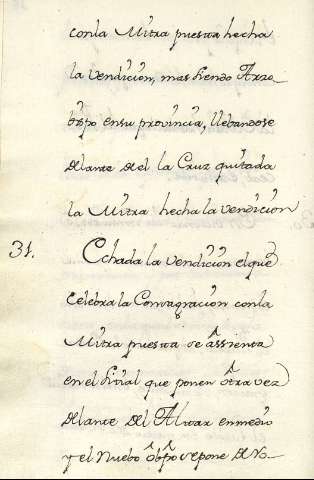 conla Mitra puesta hecha
la vendicion, mas siendo Arzo-
bispo ensu provincia, llebandose
delante de el la Cruz quitada
la Mitra hecha la vendicion
31. Echada la vendicion elque
celebra la Consagracion conla
Mitra puesta se assienta
en el sitial que ponen otra vez
delante del Altar enmedio
y el nuebo obpo sepone de ro-